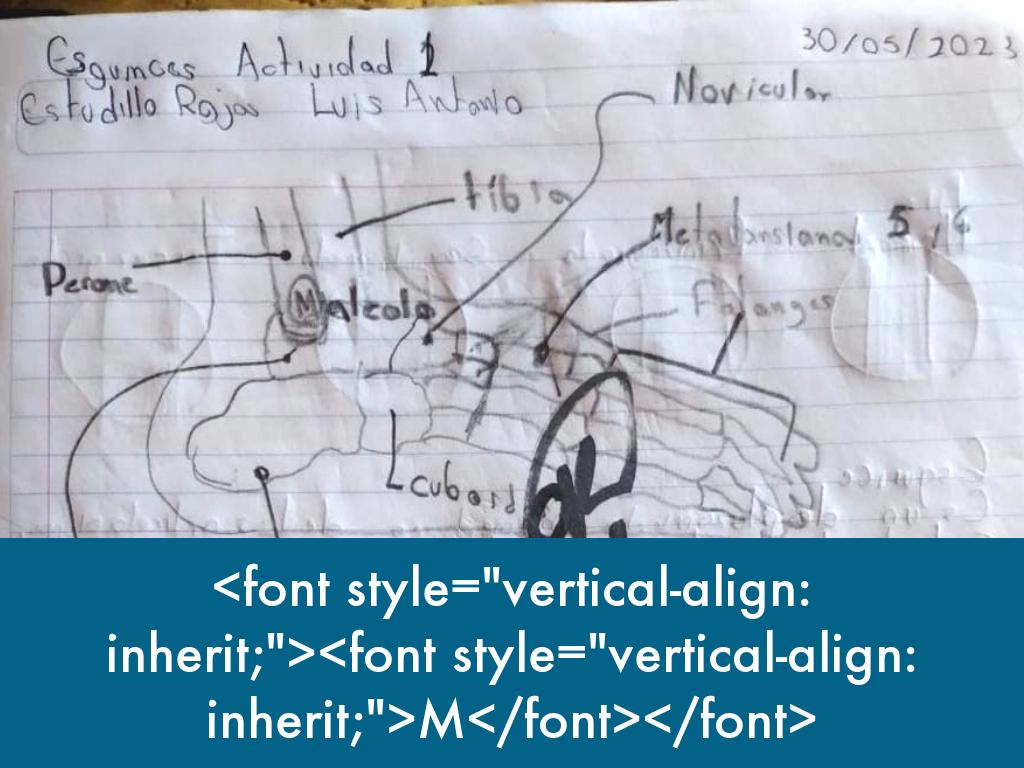 30/05/2023
Esguinces Actividad 1
Estudillo Rojas Luis Antonio
Navicular
tibia
Metatarsiano 5,
Perone
Maleolo
Falanges
cuboid
ok
<font style="vertical-align:
inherit;"><font style="vertical-align:
inherit;">M</font></font>